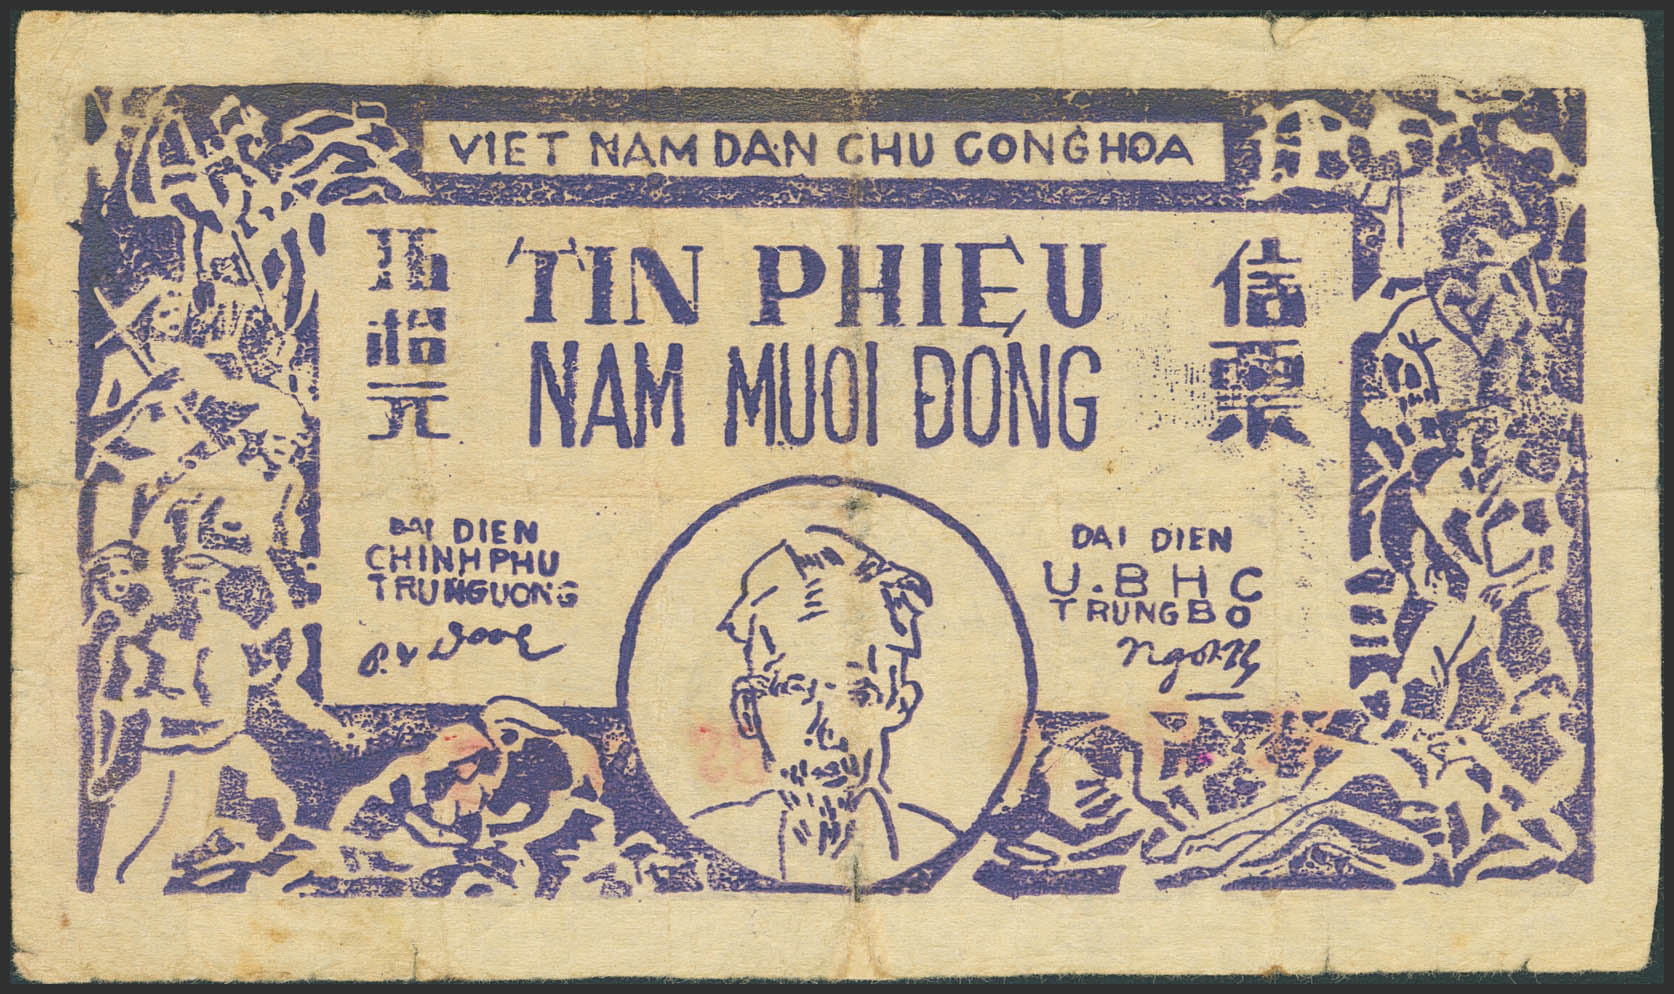 VIET NAM DAN CHU CONG HOA
五拾元
TIN PHIEU
NAM MUOI ĐONG
信票
DAI DIEN
CHINH PHU
TRUNG UONG
DAI DIEN
U.B H C
TRUNG BO